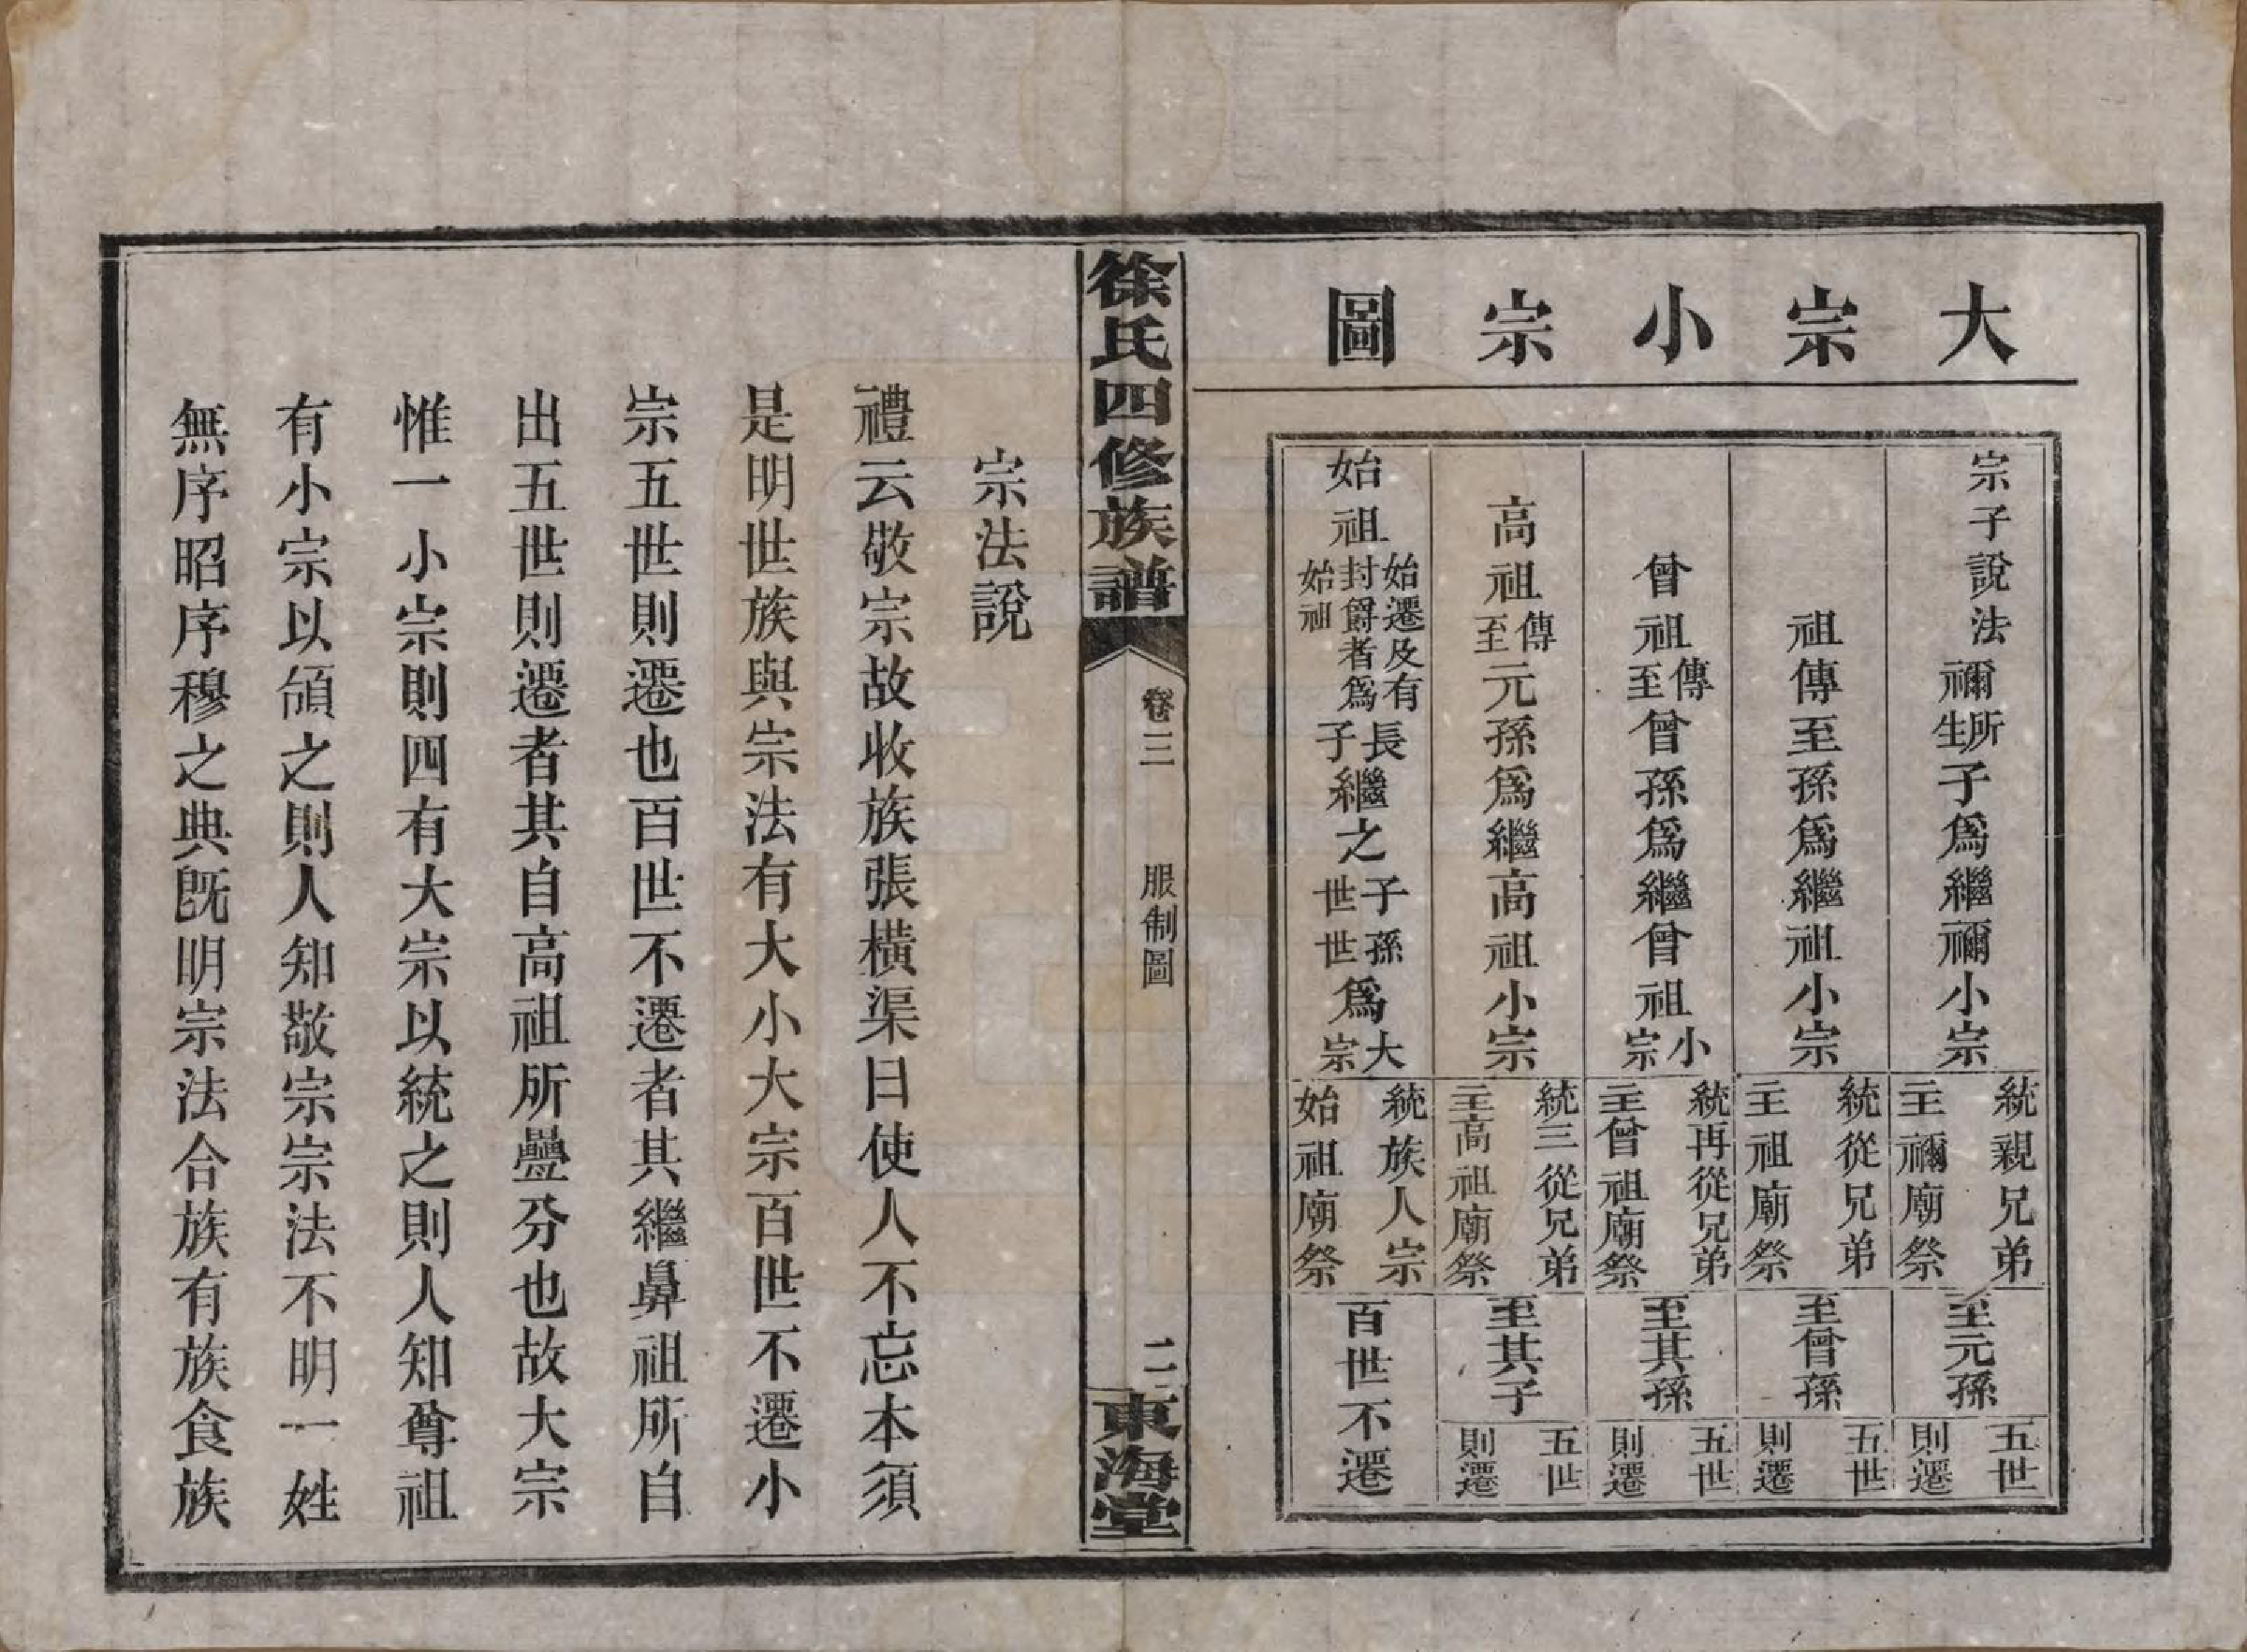 大宗小宗圖
宗子說法
禰所生子爲繼禰小宗
統親兄弟
主禰廟祭
至元孫
五世
則遷
祖傳至孫爲繼祖小宗
統從兄弟
主祖廟祭
至曾孫
五世
則遷
曾祖傳至曾孫爲繼曾祖小宗
統再從兄弟
主曾祖廟祭
至其孫
五世
則遷
高祖傳至元孫爲繼高祖小宗
統三從兄弟
主高祖廟祭
至其子
五世
則遷
始祖始遷及有封爵者爲始祖長子繼之子孫世世爲大宗
統族人宗
始祖廟祭
百世不遷
徐氏四修族譜
卷三
服制圖
二
東海堂
宗法說
禮云敬宗故收族張橫渠曰使人不忘本須
是明世族與宗法有大小大宗百世不遷小
宗五世則遷也百世不遷者其繼鼻祖所自
出五世則遷者其自高祖所疊分也故大宗
惟一小宗則四有大宗以統之則人知尊祖
有小宗以頜之則人知敬宗宗法不明一姓
無序昭序穆之典旣明宗法合族有族食族